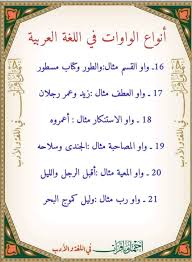 أنواع الواوات في اللغة العربية
16ـ واو القسم مثال:والطور وكتاب مسطور
17 ـ واو العطف مثال :زيد وعمر رجلان
18 ـ واو الاستنكار مثال : أعمروه
19 ـ واو المصاحبة مثال: الجندى وسلاحه
20 ـ واو المعية مثال :أقبل الرجل والليل
21 ـ واو رب مثال :وليل كموج البحر
في اللغة و الأدب